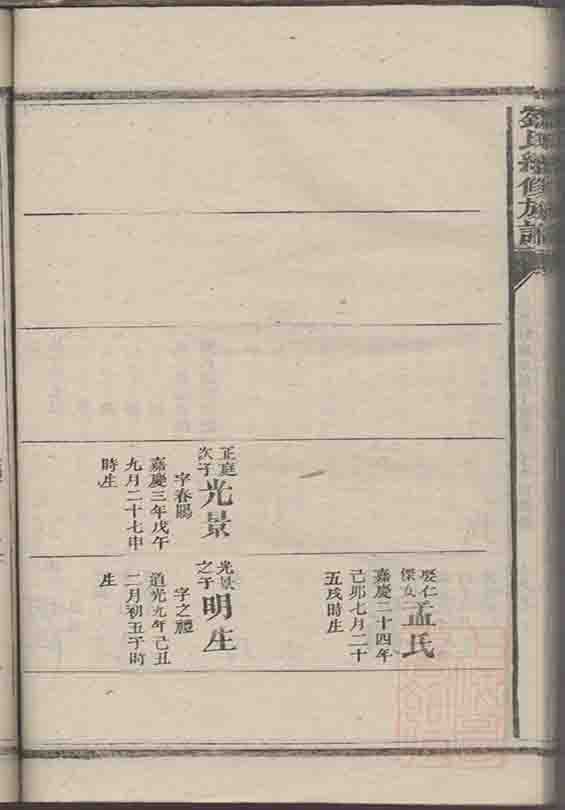 劉氏續修族譜
娶仁
傑女
孟氏
嘉慶二十四年
己卯七月二十
五戌時生
正庭
次子
光景
字春陽
嘉慶三年戊午
九月二十七申
時生
光景
之子
明生
字之禮
道光九年己丑
二月初五子時
生